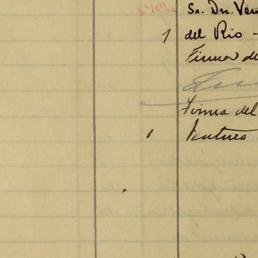 Sr. Dn. Ven
1 del Rio -
Firma de
Firma del
1 Ventura